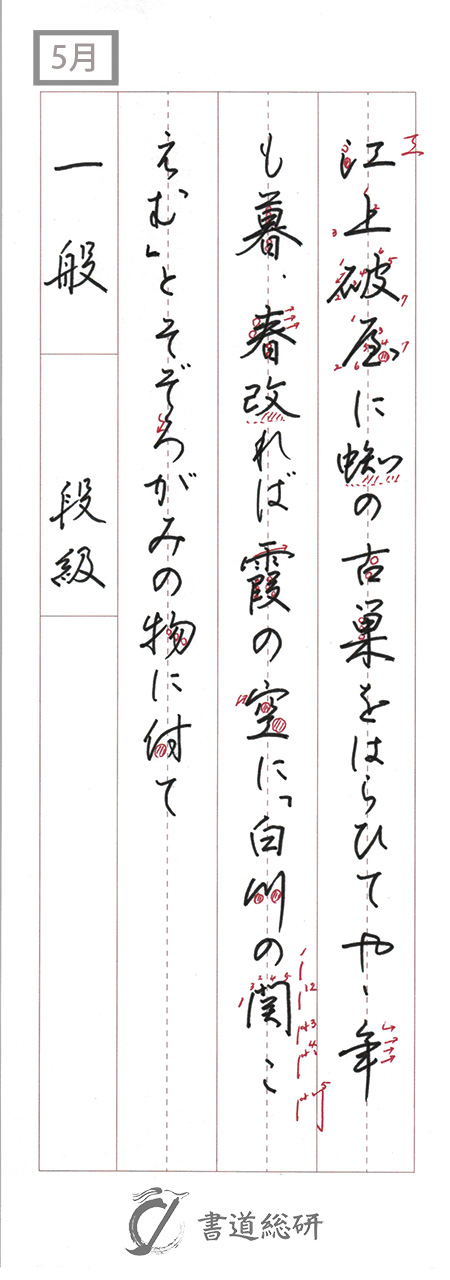 5月
江上破屋に蜘の古巣をはらひてやゝ年
も暮、春改れば霞の空に「白川の関こ
えむ」とそぞろがみの物に付て
一般 段級
書道総研